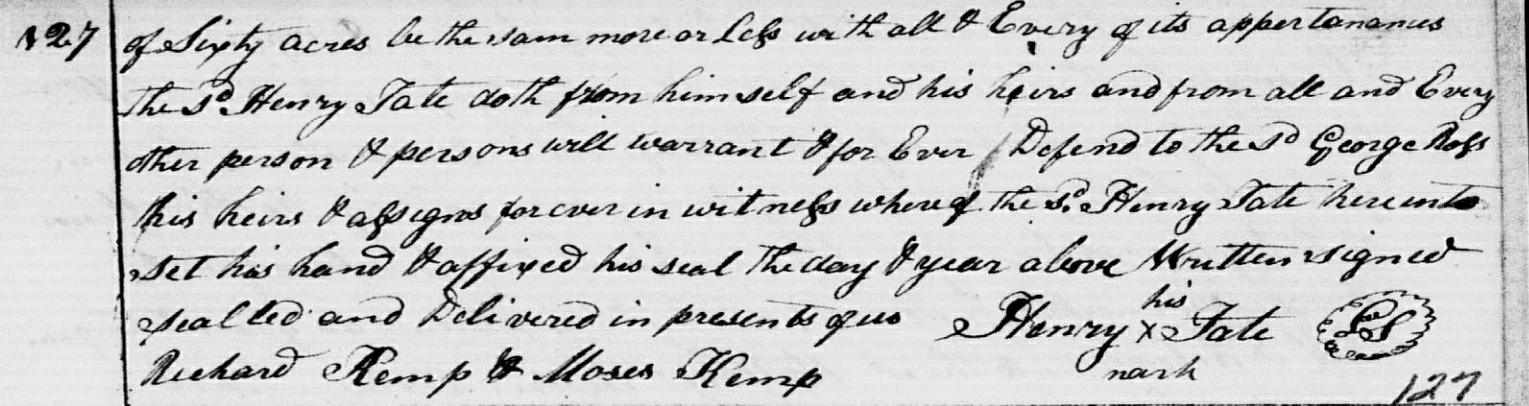 127 of Sixty acres be the sam more or Less with all & Every of its appertanances
the sd. Henry Tate doth from himself and his heirs and from all and Every
other person & persons will warrant & for Ever Defend to the sd George Ross
his heirs & assigns forever in witness whereof the sd. Henry Tate hereunto
set his hand & affixed his seal the day & year above Written signed
sealled and Delivered in presents of us Henry his x mark Tate LS
Richard Kemp & Moses Kemp
127